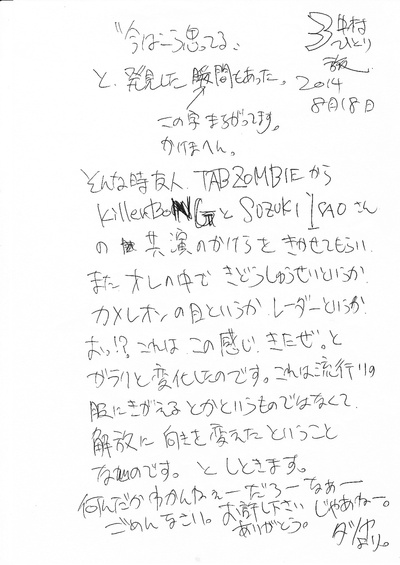 "今はこう思ってる、
と、発見した瞬間もあった。
中村
ひとり
2014
8月18日
この字まちがってます。
かけまへん。
そんな時友人、TABZOMBIEから
KillerBONGとSUZUKI ISAOさん
の共演のかけらをきかせてもらい
またオレの中できどうしゅうせいというか
カメレオンの目というか、レーダーというか
おっ!?これは、この感じ、きたぜ。と
ガラリと変化したのです。これは流行りの
服にきがえるとかというものではなくて、
解放に向きを変えたということ
なのです。としときます。
何んだかわかんねぇーだろーなぁー
ごめんなさい。お許し下さい じゃあねー。
ありがとう。
より。